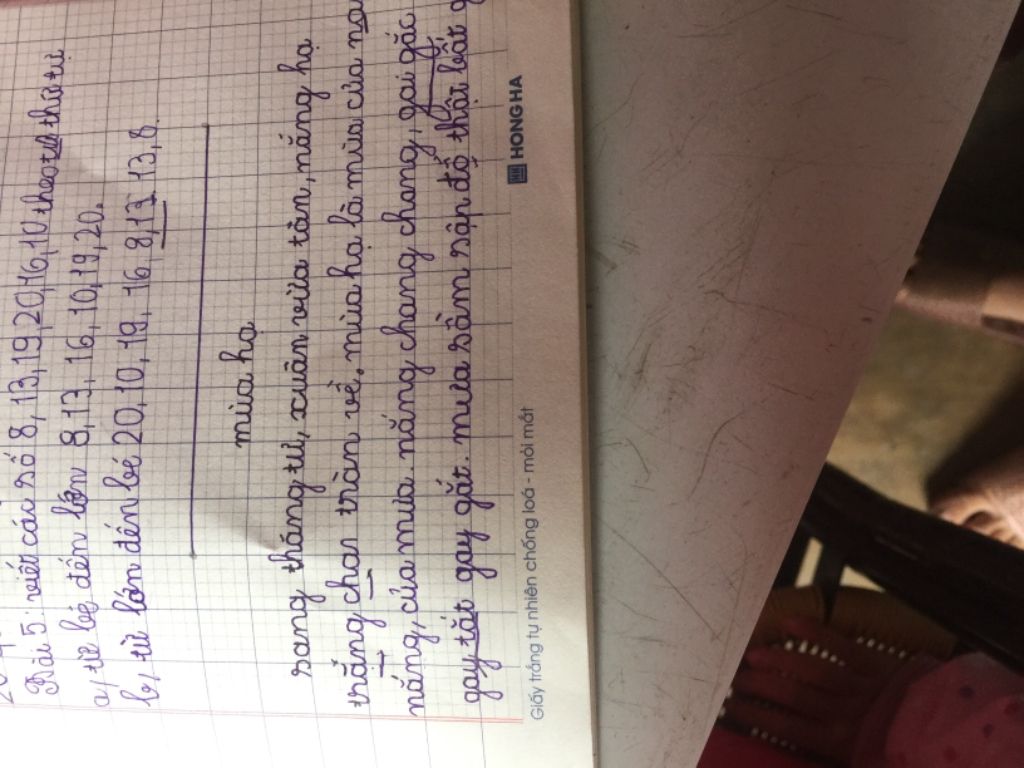 Bài 5: viết các số 8, 13, 19, 20, 16, 10 theo thứ tự
a, từ bé đến lớn 8, 13, 16, 10, 19, 20.
b, từ lớn đến bé 20, 10, 19, 16, 8, 13 13, 8.
mùa hạ
sang tháng tư, xuân vừa tàn, nắng hạ
trắng chan tràn về. mùa hạ là mùa của
nắng, của mưa. nắng chang chang, gai gác
gay tắt gay gắt. mưa sầm sập đổ
Giấy trắng tự nhiên chống loá - mỏi mắt
HONG HA